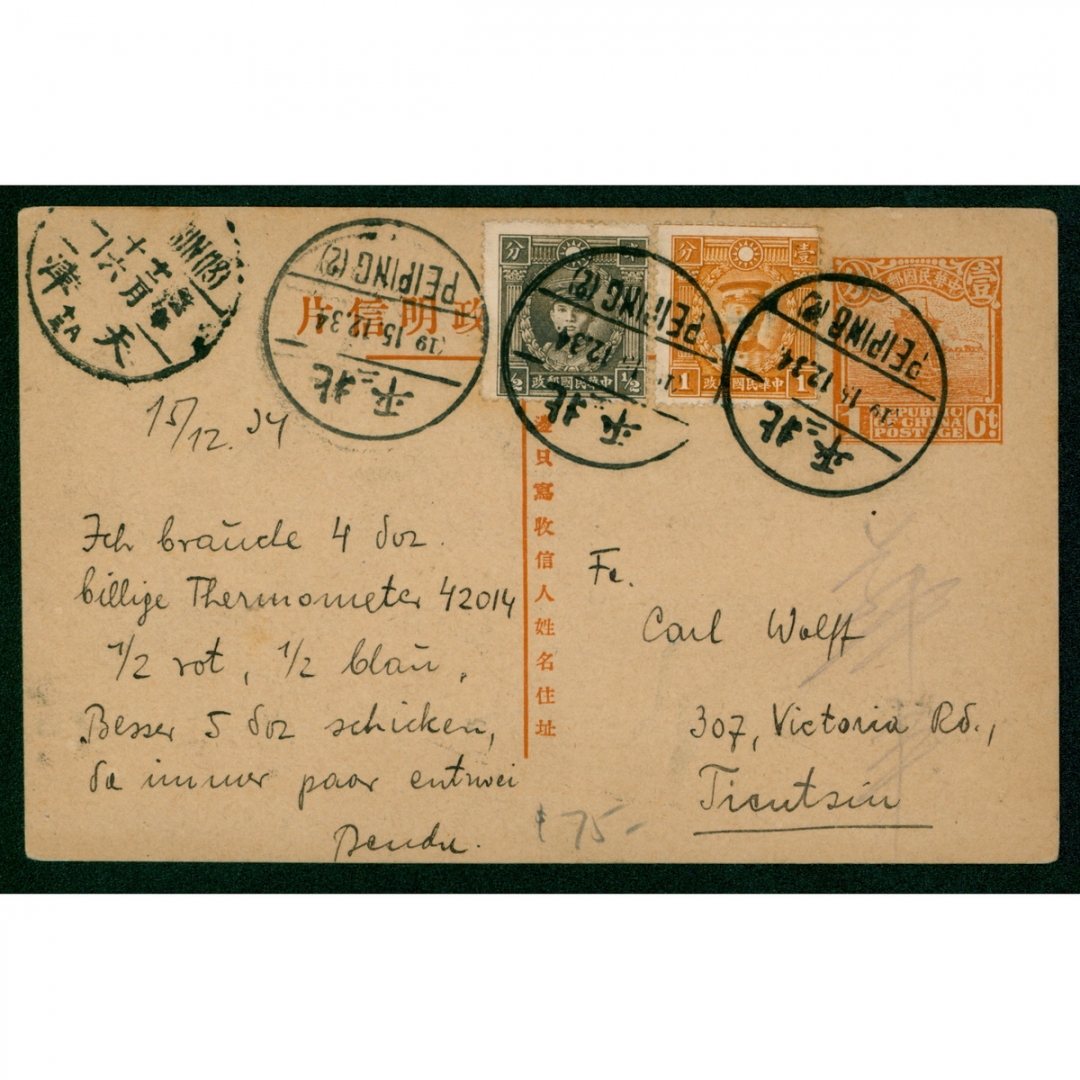 政明信片
分
½
½
中華民國郵政
壹
分
1
1
中華民國郵政
中華民國郵政
壹
1
Ct
REPUBLIC
OF CHINA
POSTAGE
PEIPING (2)
(19 15.12.34
北平
PEIPING (2)
12.34
北平
PEIPING (2)
(19 15 12.34
北平
SIN (18)
天津
15/12. 34
Ich brauche 4 doz.
billige Thermometer 42014
1/2 rot, 1/2 blau,
Besser 5 doz schicken,
da immer paar entzwei
邊只寫收信人姓名住址
Carl Wolff
307, Victoria Rd.,
Tientsin
75-